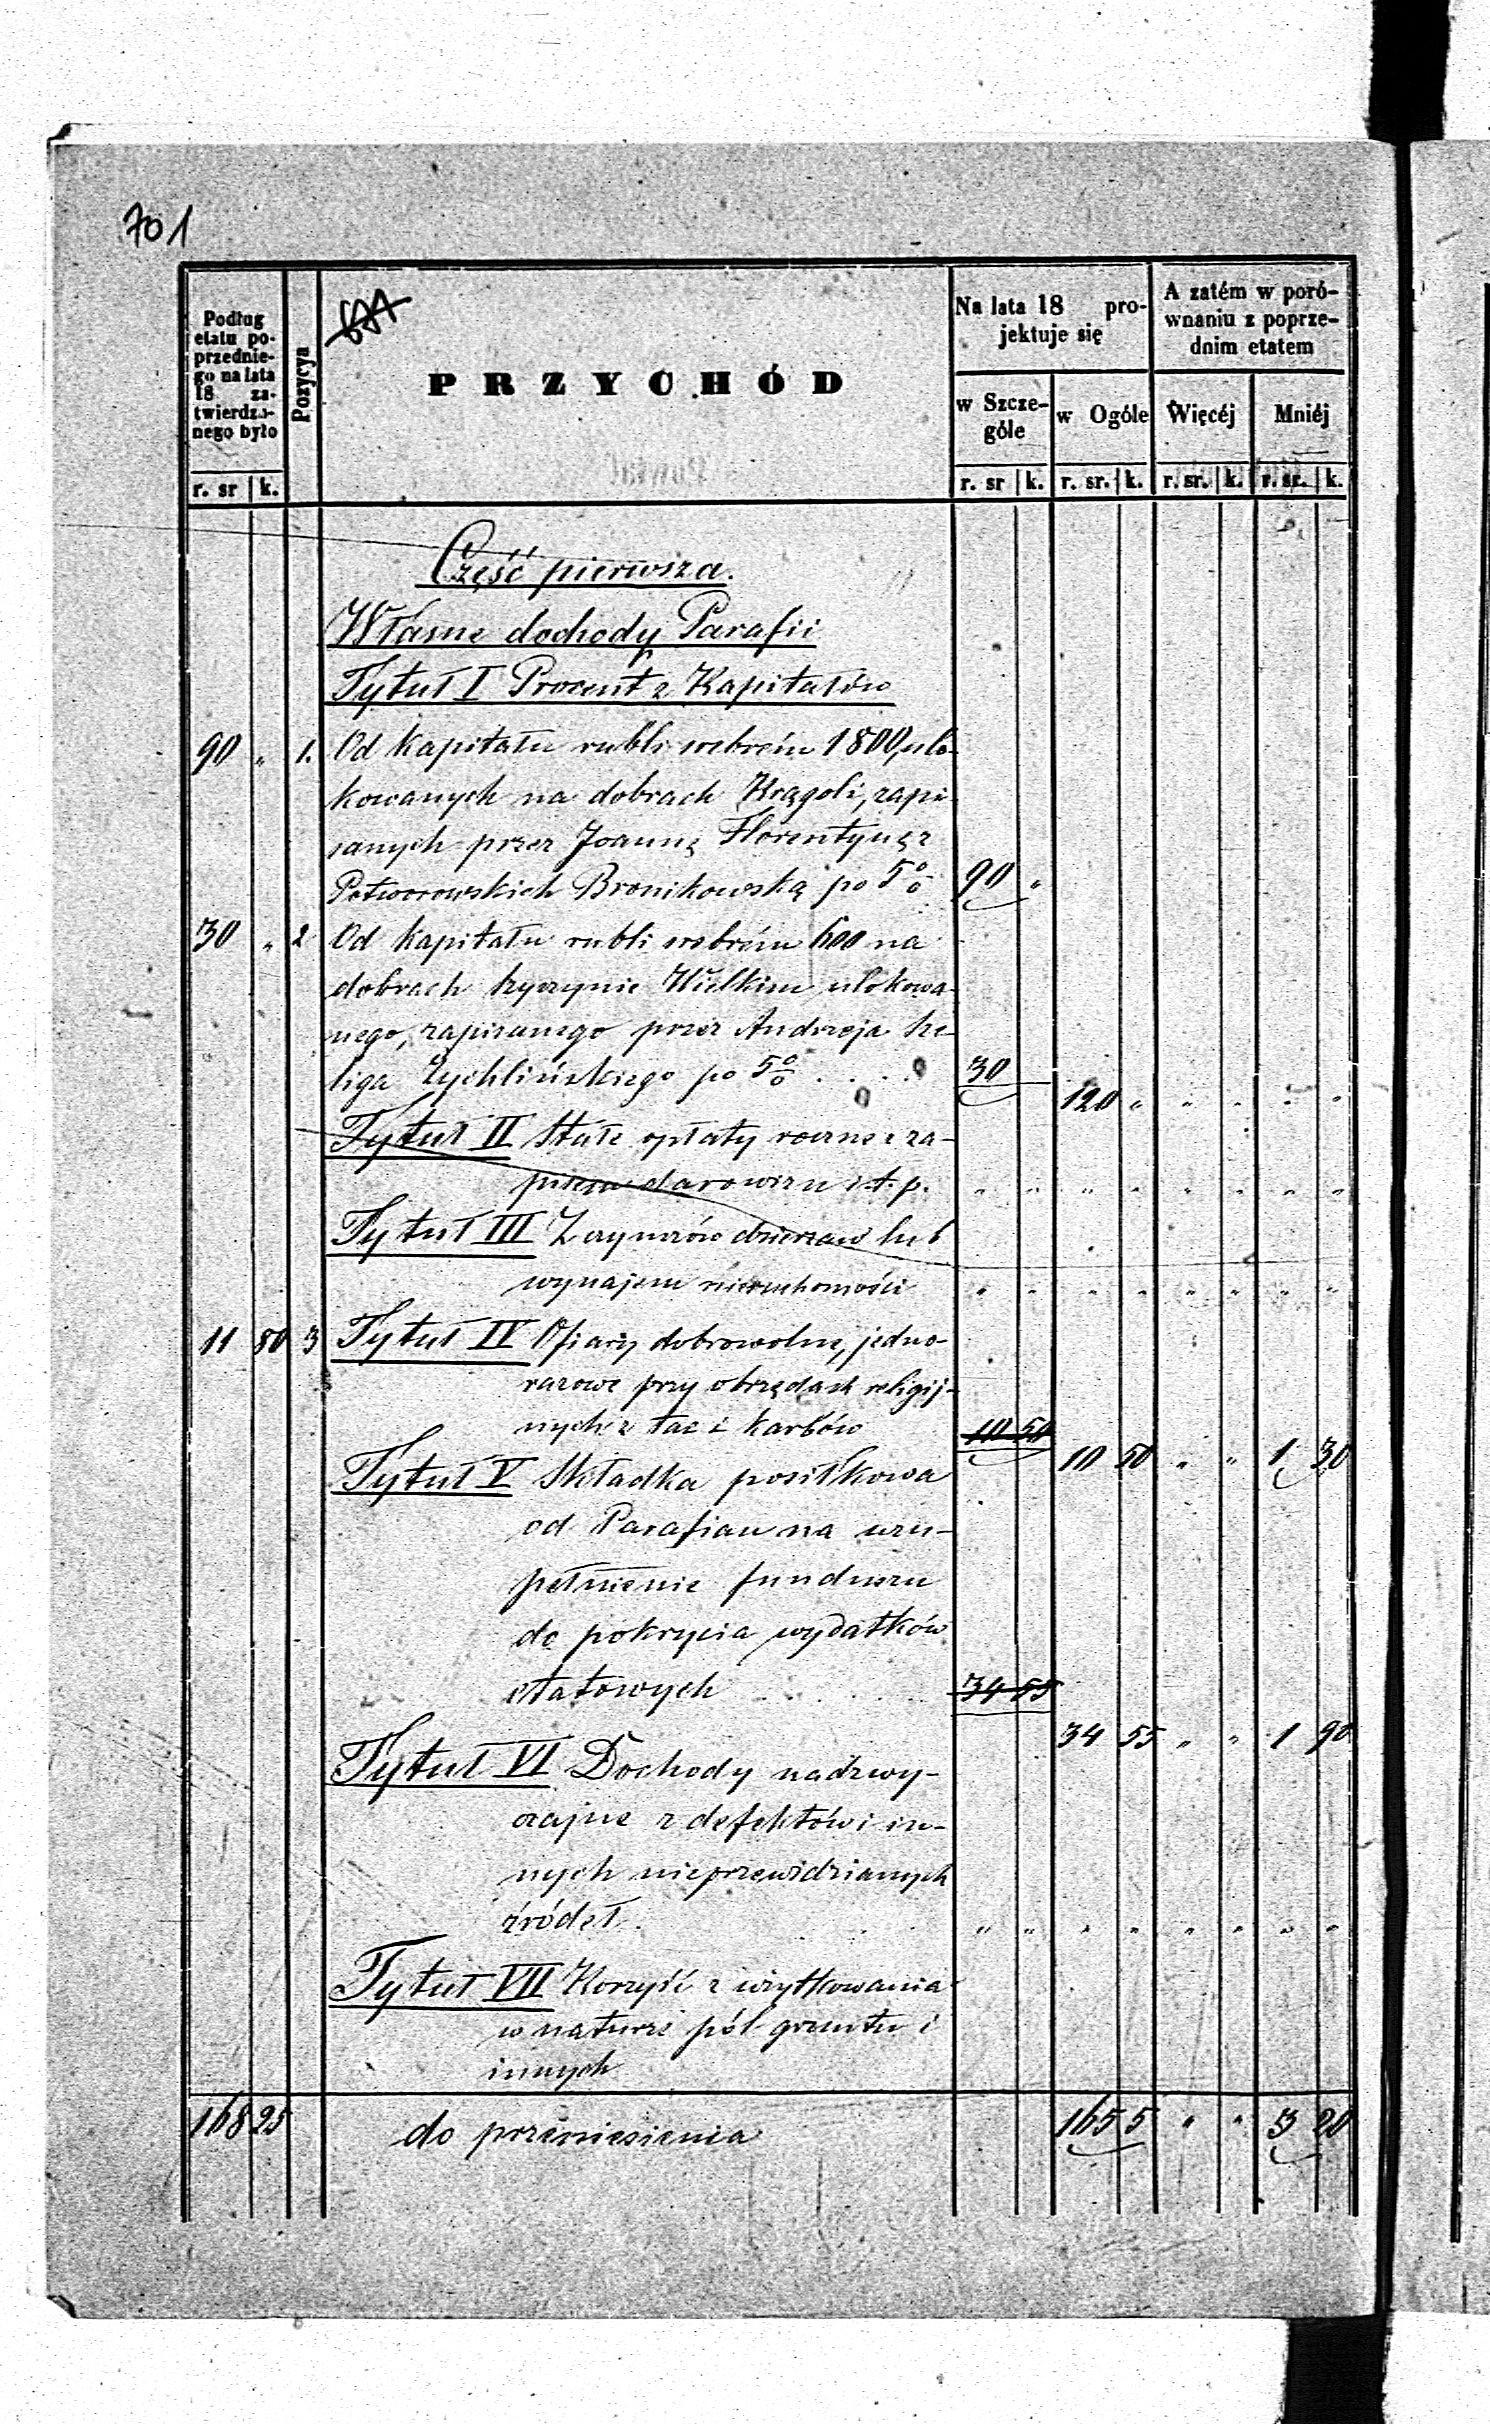 701
Podług
etatu po-
przednie-
go na lata
18 za-
twierdzo-
nego było
Pozycya
PRZYCHÓD
Na lata 18 pro-
jektuje się
A zatém w poró-
wnaniu z poprze-
dnim etatem
w Szcze-
góle
w Ogóle
Więcéj
Mniéj
r. sr k. r. sr k. r. sr. k. r. sr. k. r. sr. k.
Część pierwsza.
Własne dochody Parafii
Tytuł I Procent z Kapitałów
90 " 1. Od Kapitału rubli srebrém 1800, ulo-
kowanych na dobrach Krągoli, zapi-
sanych przez Joannę Florentynę z
Potworowskich Bronikowską po 5% 90 "
30 " 2 Od Kapitału rubli srebrém 600 na
dobrach Wielkim ulokowa-
nego, zapisanego przez Andrzeja Se-
liga Żychlińskiego po 5% . . . . 30
120 " " " " "
Tytuł II Stałe opłaty roczne z za-
pisów darowizn i t. p. " " " " " " " "
Tytuł III Z czynszów dzierzaw lub
wynajem nieruchomości " " " " " " " "
11 80 3 Tytuł IV Ofiary dobrowolne, jedno-
razowe przy obrzędach religij-
nych z tac i karbów 10 50
10 50 " " 1 30
Tytuł V Składka posiłkowa
od Parafian na uzu-
pełnienie funduszu
do pokrycia wydatków
etatowych . . . . 34 55
34 55 " " 1 90
Tytuł VI Dochody nadzwy-
czajne z defektów i in-
nych nieprzewidzianych
źródeł. " " " " " " " "
Tytuł VII Korzyść z użytkowania
w naturze pól gruntu i
innych
168 25 do przeniesienia 165 5 " " 3 20